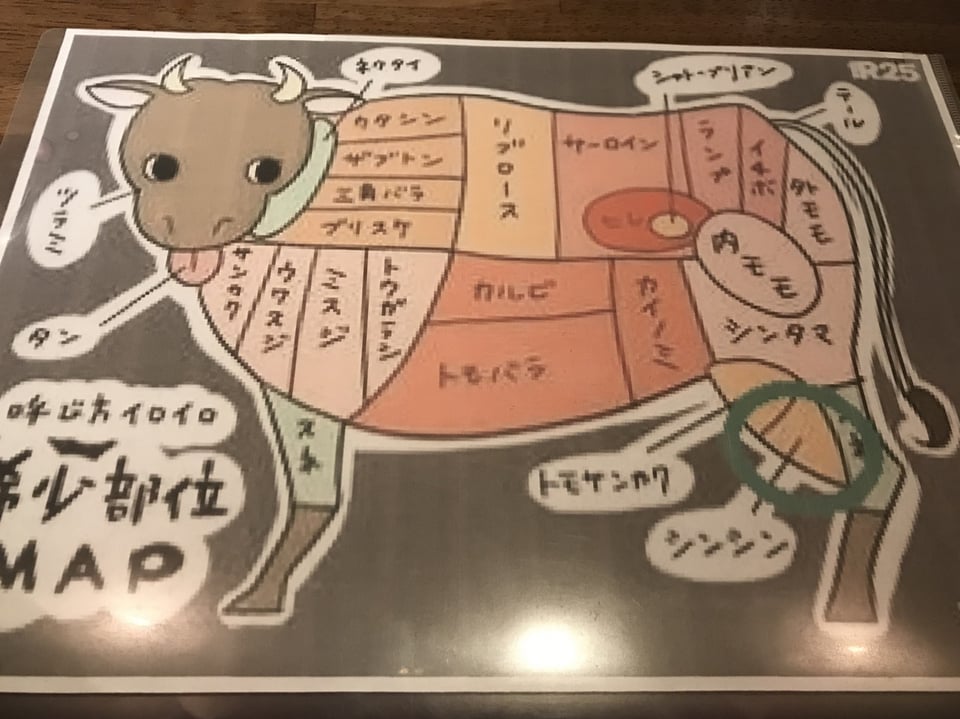 ネクタイ
シャトーブリアン
R25
テール
ツラミ
タン
ウタシン
ザブトン
三角バラ
ブリスケ
リブロース
サーロイン
ヒレ
ランプ
イチボ
外モモ
内モモ
シンタマ
サンカク
ウワスジ
ミスジ
トウガラシ
カルビ
トモバラ
カイノミ
スネ
スネ
トモサンカク
シンシン
呼び方イロイロ
希少部位
MAP